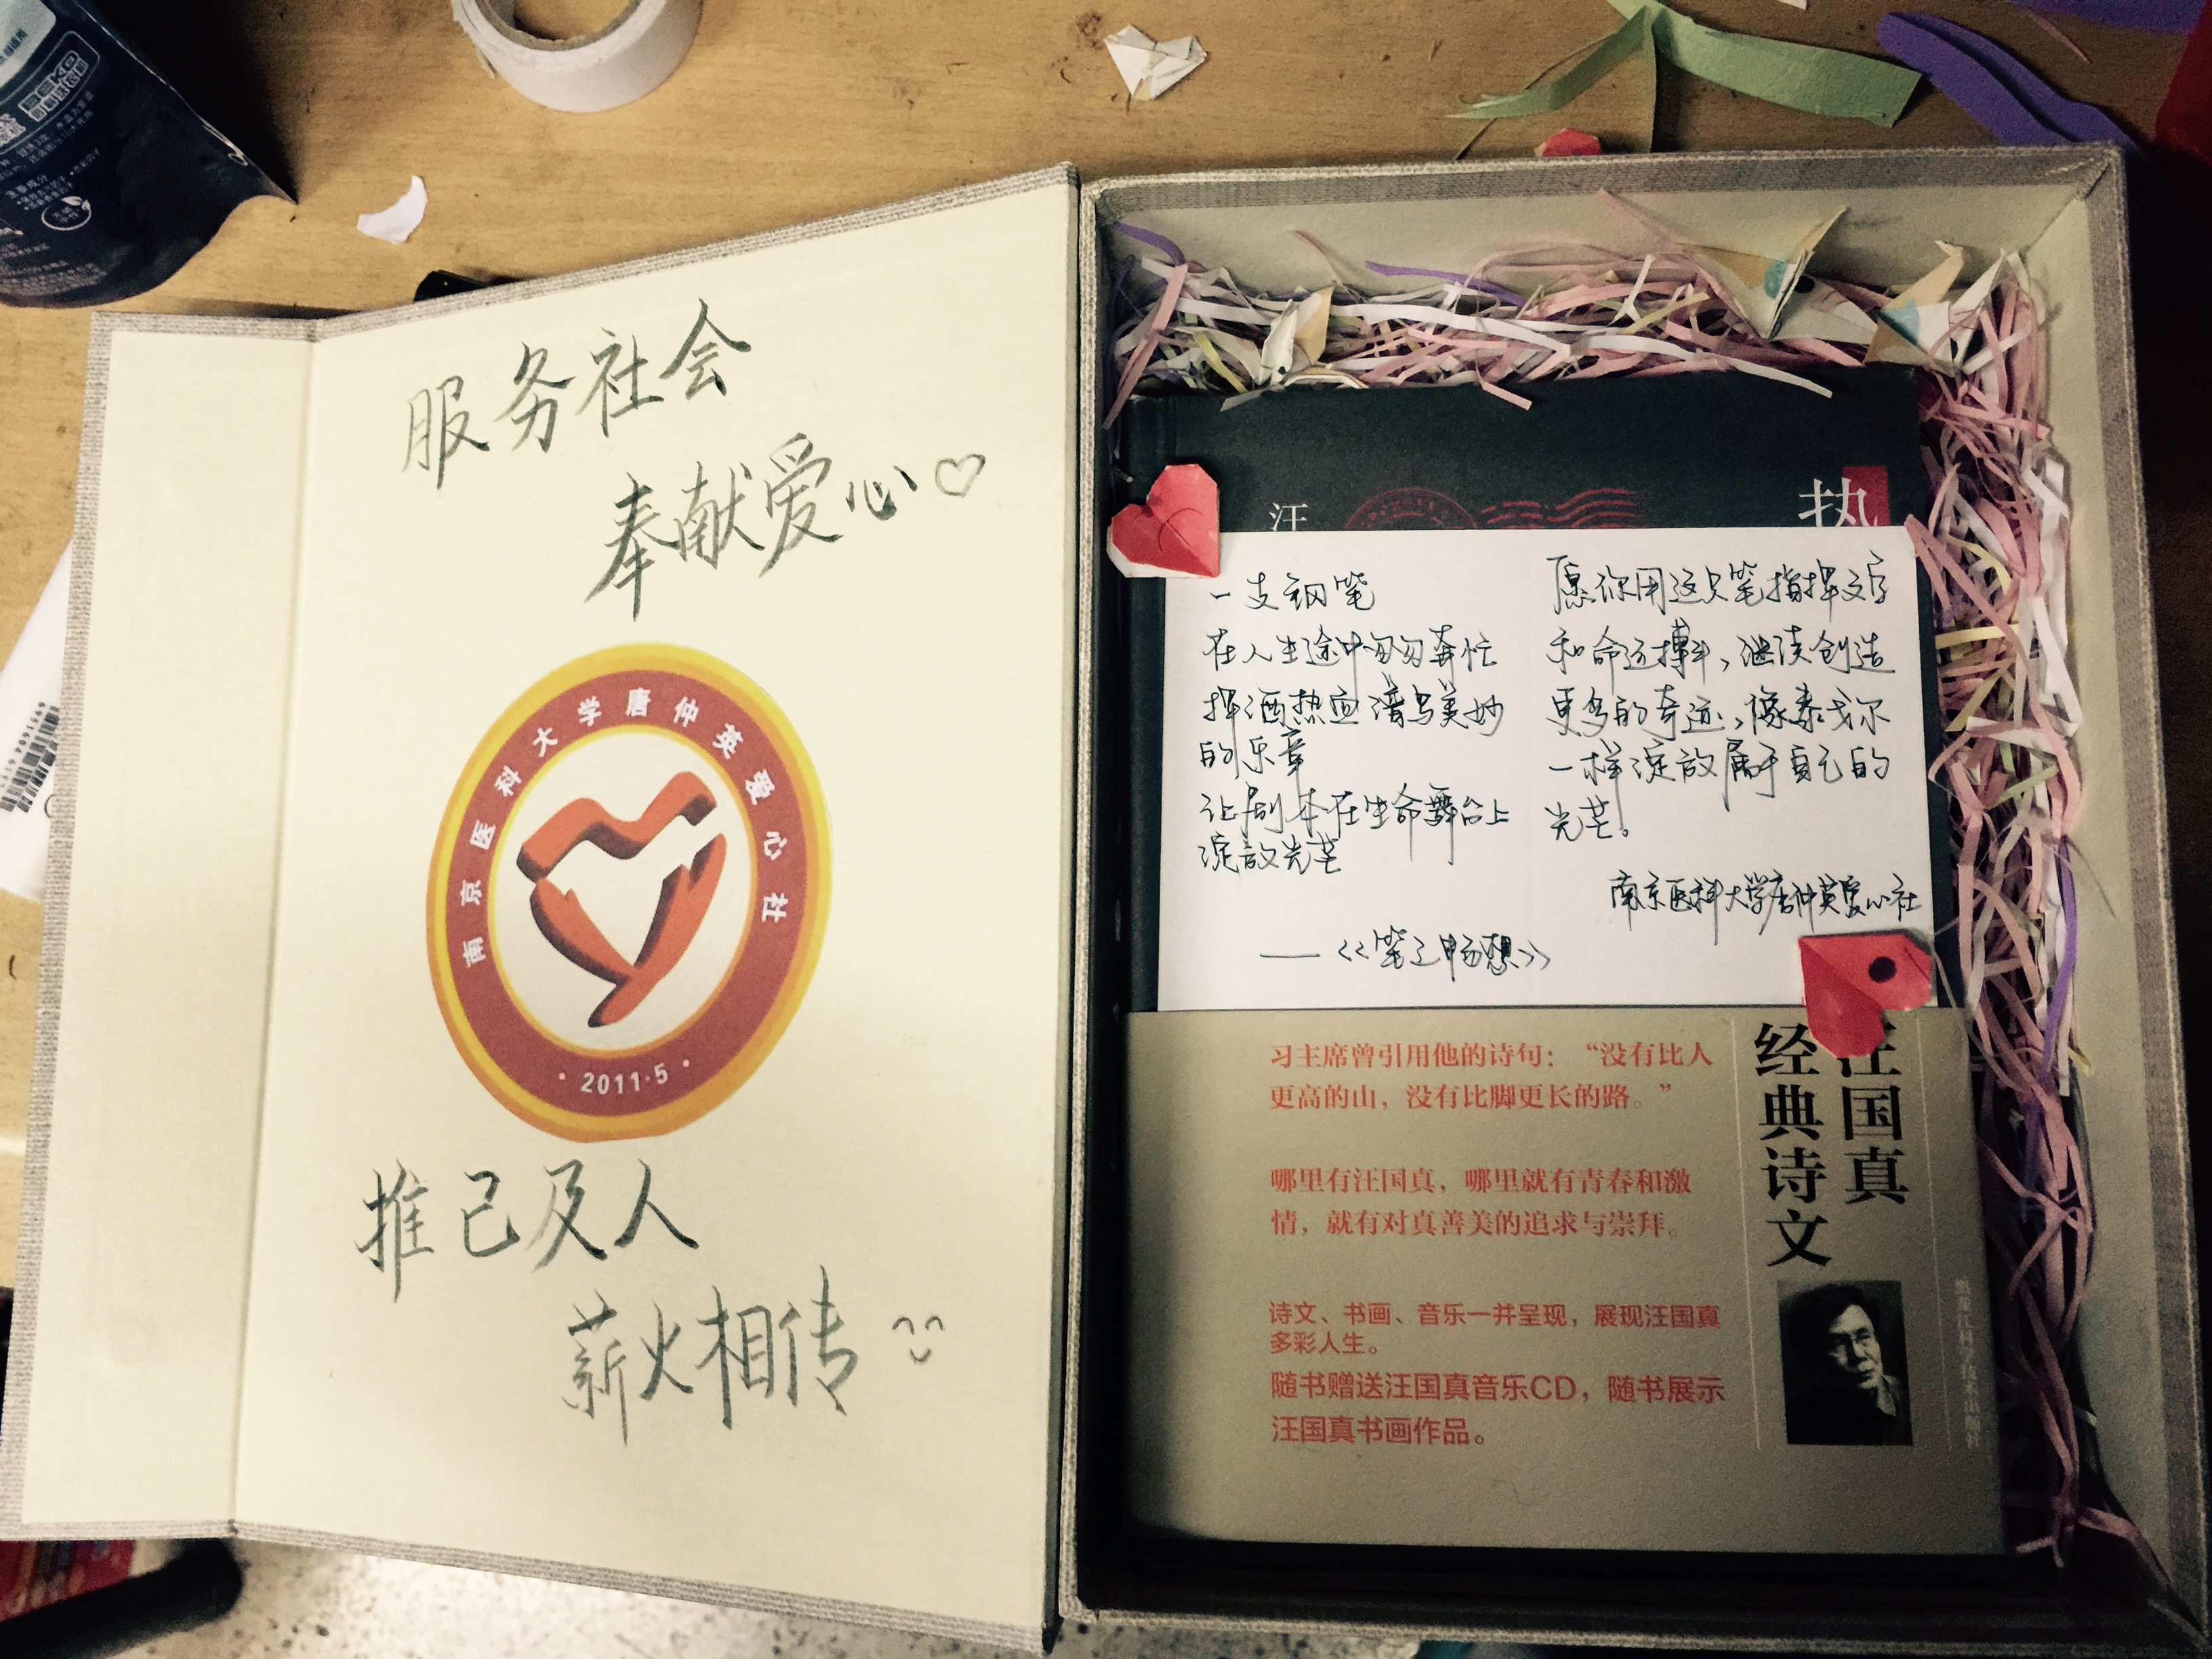 服务社会
奉献爱心
南京医科大学唐仲英爱心社
·2011·5·
推己及人
薪火相传
汪
热
一支钢笔
在人生途中匆匆奔忙
挥洒热血谱写美妙
的乐章
让剧本在生命舞台上
绽放光芒
——《笔之畅想》
愿你用这只笔指挥文字
和命运搏斗,继续创造
更多的奇迹,像泰戈尔
一样绽放属于自己的
光芒。
南京医科大学唐仲英爱心社
习主席曾引用他的诗句：“没有比人
更高的山，没有比脚更长的路。”
哪里有汪国真，哪里就有青春和激
情，就有对真善美的追求与崇拜。
诗文、书画、音乐一并呈现，展现汪国真
多彩人生。
随书赠送汪国真音乐CD，随书展示
汪国真书画作品。
汪国真
经典诗文